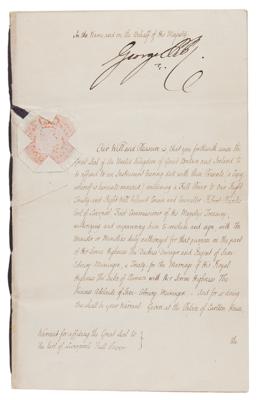 In the Name, and on the Behalf of His Majesty.
George P R
Our Will and Pleasure is that you forthwith cause the
Great Seal of the United Kingdom of Great Britain and Ireland to
be affixed to an Instrument bearing date with these Presents (a Copy
whereof is hereunto annexed) containing a Full Power to Our Right
Trusty and Right Well beloved Cousin and Councillor Robert Banks
Earl of Liverpool First Commissioner of His Majesty's Treasury,
authorizing and empowering him to conclude and sign with the
Minister or Ministers duly authorized for that purpose on the part
of Her Serene Highness the Duchess Dowager and Regent of Saxe
Coburg Meiningen, a Treaty for the Marriage of His Royal
Highness The Duke of Clarence with Her Serene Highness The
Princess Adelaide of Saxe Coburg Meiningen. And for so doing
this shall be your Warrant. Given at the Palace of Carlton House
the
Warrant for affixing the Great Seal to
the Earl of Liverpool's Full Power